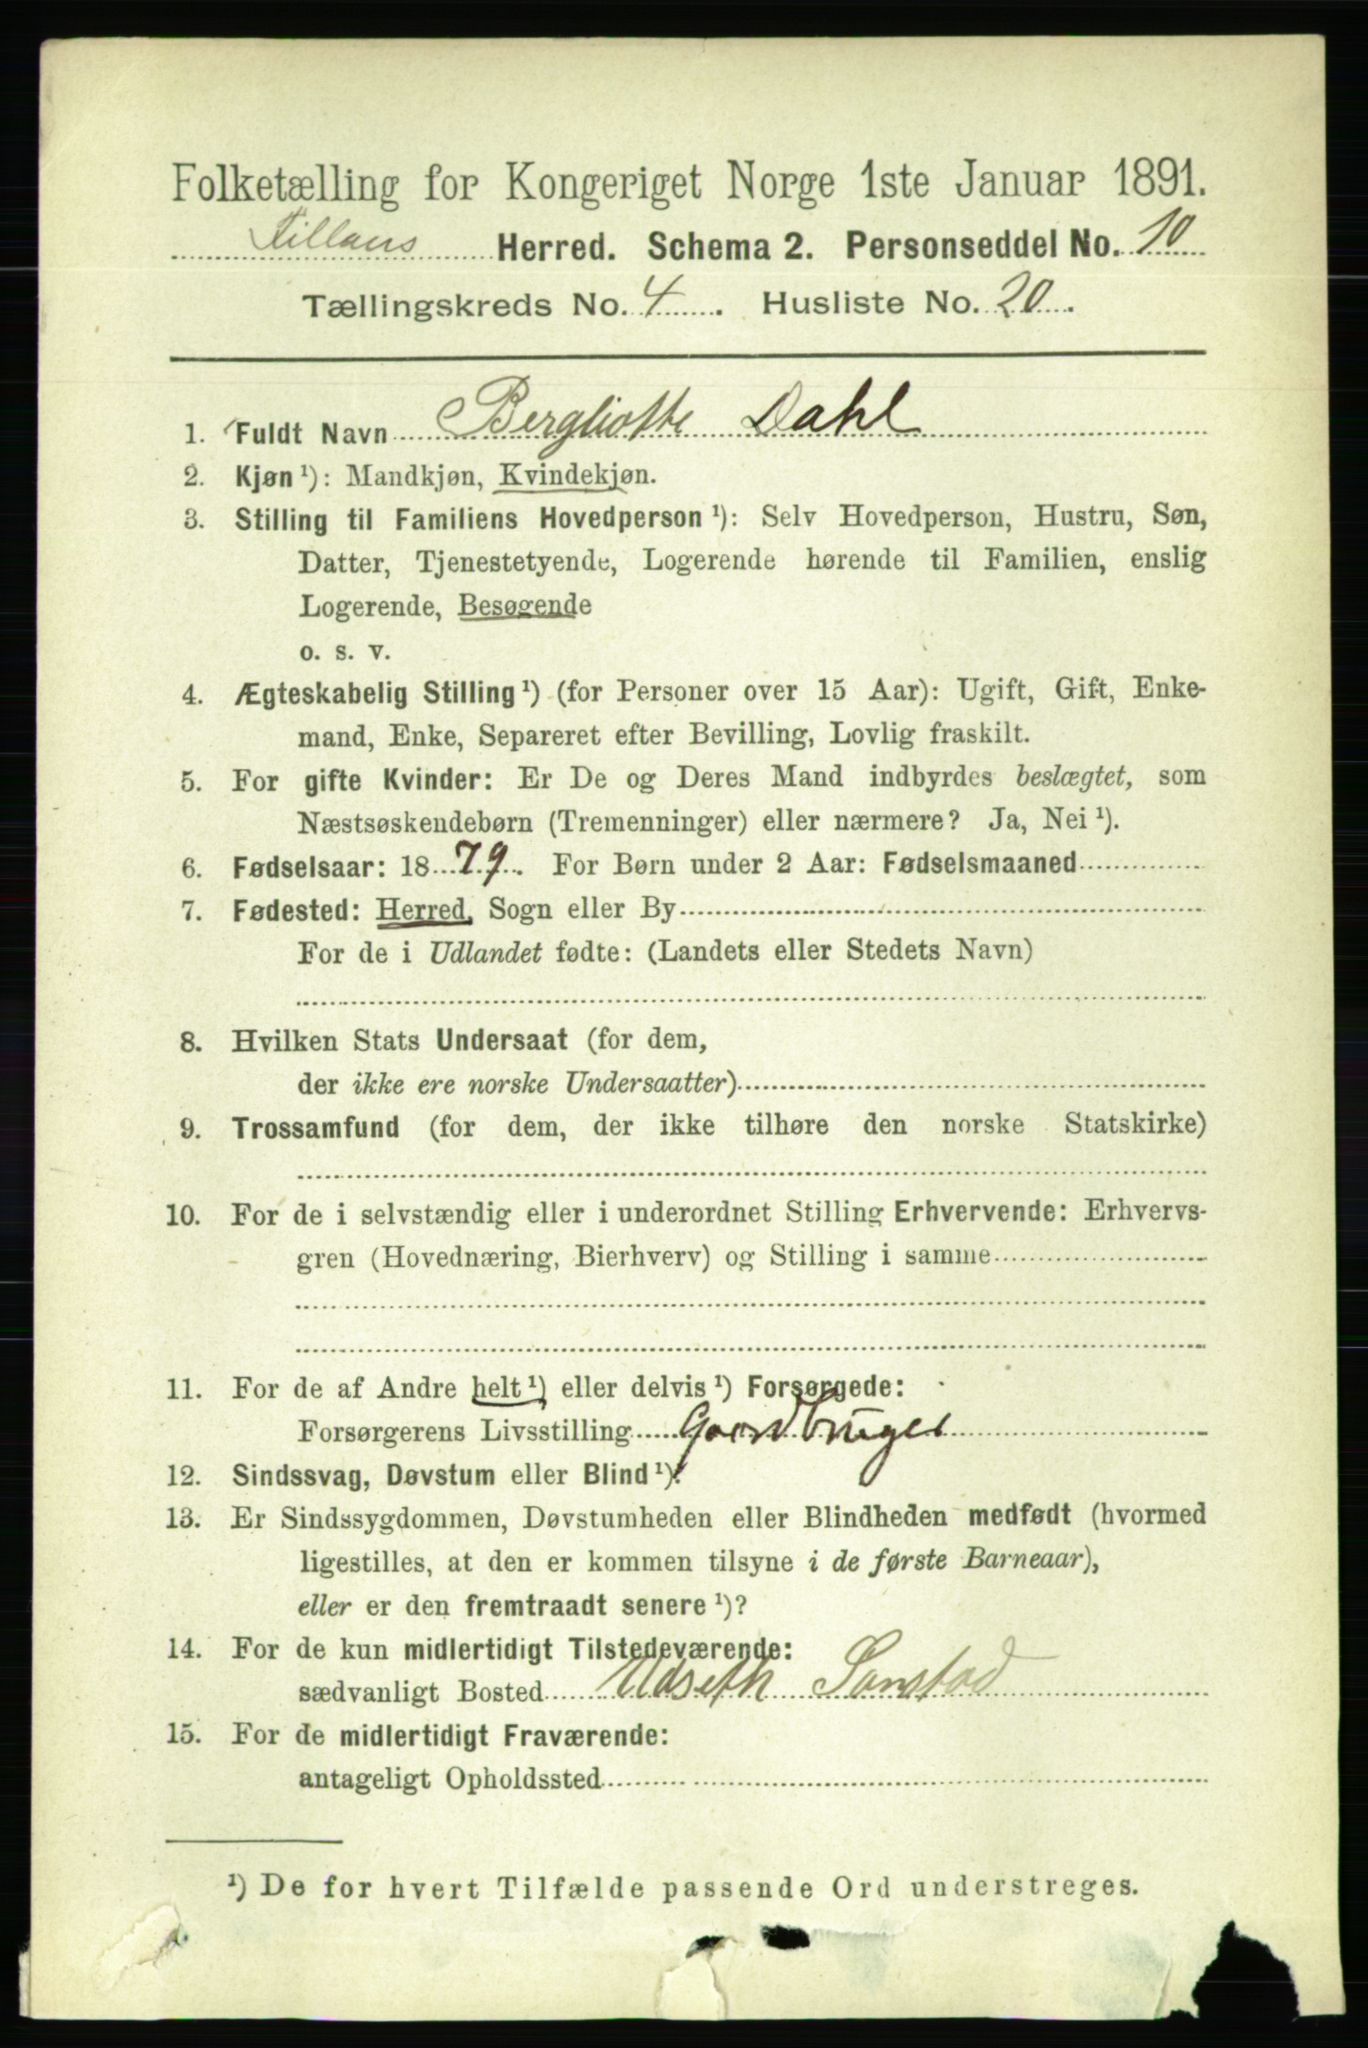 Folketælling for Kongeriget Norge 1ste Januar 1891.
Fillans Herred. Schema 2. Personseddel No. 10
Tællingskreds No. 4. Husliste No. 20.
1. Fuldt Navn Bergliotte Dahl
2. Kjøn ¹): Mandkjøn, Kvindekjøn.
3. Stilling til Familiens Hovedperson ¹): Selv Hovedperson, Hustru, Søn,
Datter, Tjenestetyende, Logerende hørende til Familien, enslig
Logerende, Besøgende
o. s. v.
4. Ægteskabelig Stilling ¹) (for Personer over 15 Aar): Ugift, Gift, Enke-
mand, Enke, Separeret efter Bevilling, Lovlig fraskilt.
5. For gifte Kvinder: Er De og Deres Mand indbyrdes beslægtet, som
Næstsøskendebørn (Tremenninger) eller nærmere? Ja, Nei ¹).
6. Fødselsaar: 18 79. For Børn under 2 Aar: Fødselsmaaned
7. Fødested: Herred, Sogn eller By
For de i Udlandet fødte: (Landets eller Stedets Navn)
8. Hvilken Stats Undersaat (for dem,
der ikke ere norske Undersaatter)
9. Trossamfund (for dem, der ikke tilhøre den norske Statskirke)
10. For de i selvstændig eller i underordnet Stilling Erhvervende: Erhvervs-
gren (Hovednæring, Bierhverv) og Stilling i samme
11. For de af Andre helt ¹) eller delvis ¹) Forsørgede:
Forsørgerens Livsstilling Gaardbruger
12. Sindssvag, Døvstum eller Blind ¹).
13. Er Sindssygdommen, Døvstumheden eller Blindheden medfødt (hvormed
ligestilles, at den er kommen tilsyne i de første Barneaar),
eller er den fremtraadt senere ¹)?
14. For de kun midlertidigt Tilstedeværende:
sædvanligt Bosted Udseth Sonstad
15. For de midlertidigt Fraværende:
antageligt Opholdssted
¹) De for hvert Tilfælde passende Ord understreges.